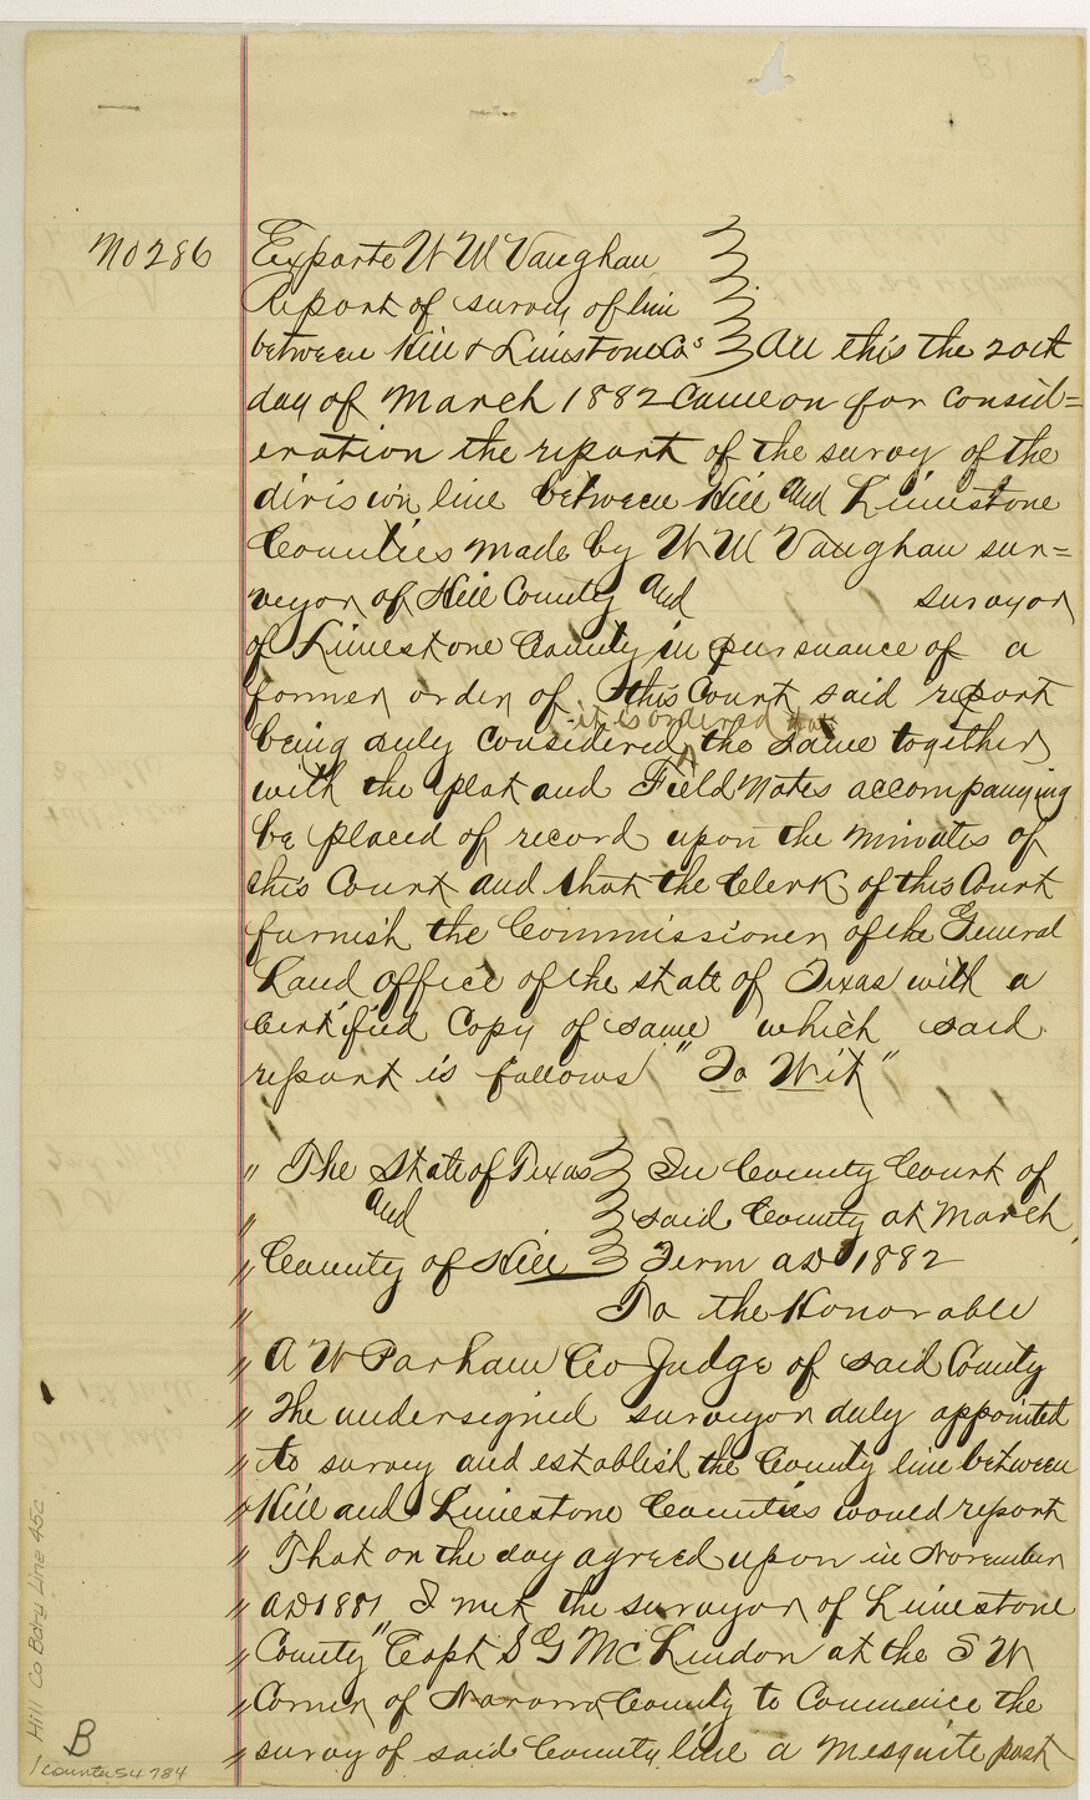 No 286
Exparte W M Vaughan
Report of survey of line
between Hill & Limestone Cos } On this the 20th
day of March 1882 came on for consid=
eration the report of the survey of the
division line between Hill and Limestone
Counties made by W M Vaughan sur=
veyor of Hill County and surveyor
of Limestone County in pursuance of a
former order of this Court said report
it is ordered that
being duly considered ^ the same together
with the plat and Field Notes accompanying
be placed of record upon the minutes of
this Court and that the Clerk of this Court
furnish the Commissioner of the General
Land office of the state of Texas with a
Certified Copy of same which said
report is follows "To Wit"
" The State of Texas } In County Court of
" and } said County at March
" County of Hill } Term AD 1882
" To the Honorable
" A W Parham Co Judge of said County
" The undersigned surveyor duly appointed
" to survey and establish the County line between
" Hill and Limestone Counties would report
" That on the day agreed upon in November
" AD 1881 I met the surveyor of Limestone
" County "Capt S G McLendon at the S W
" Corner of Navarro County to Commence the
" survey of said County line a Mesquite post
Hill Co Bdry Line 45c
B
counter 54784